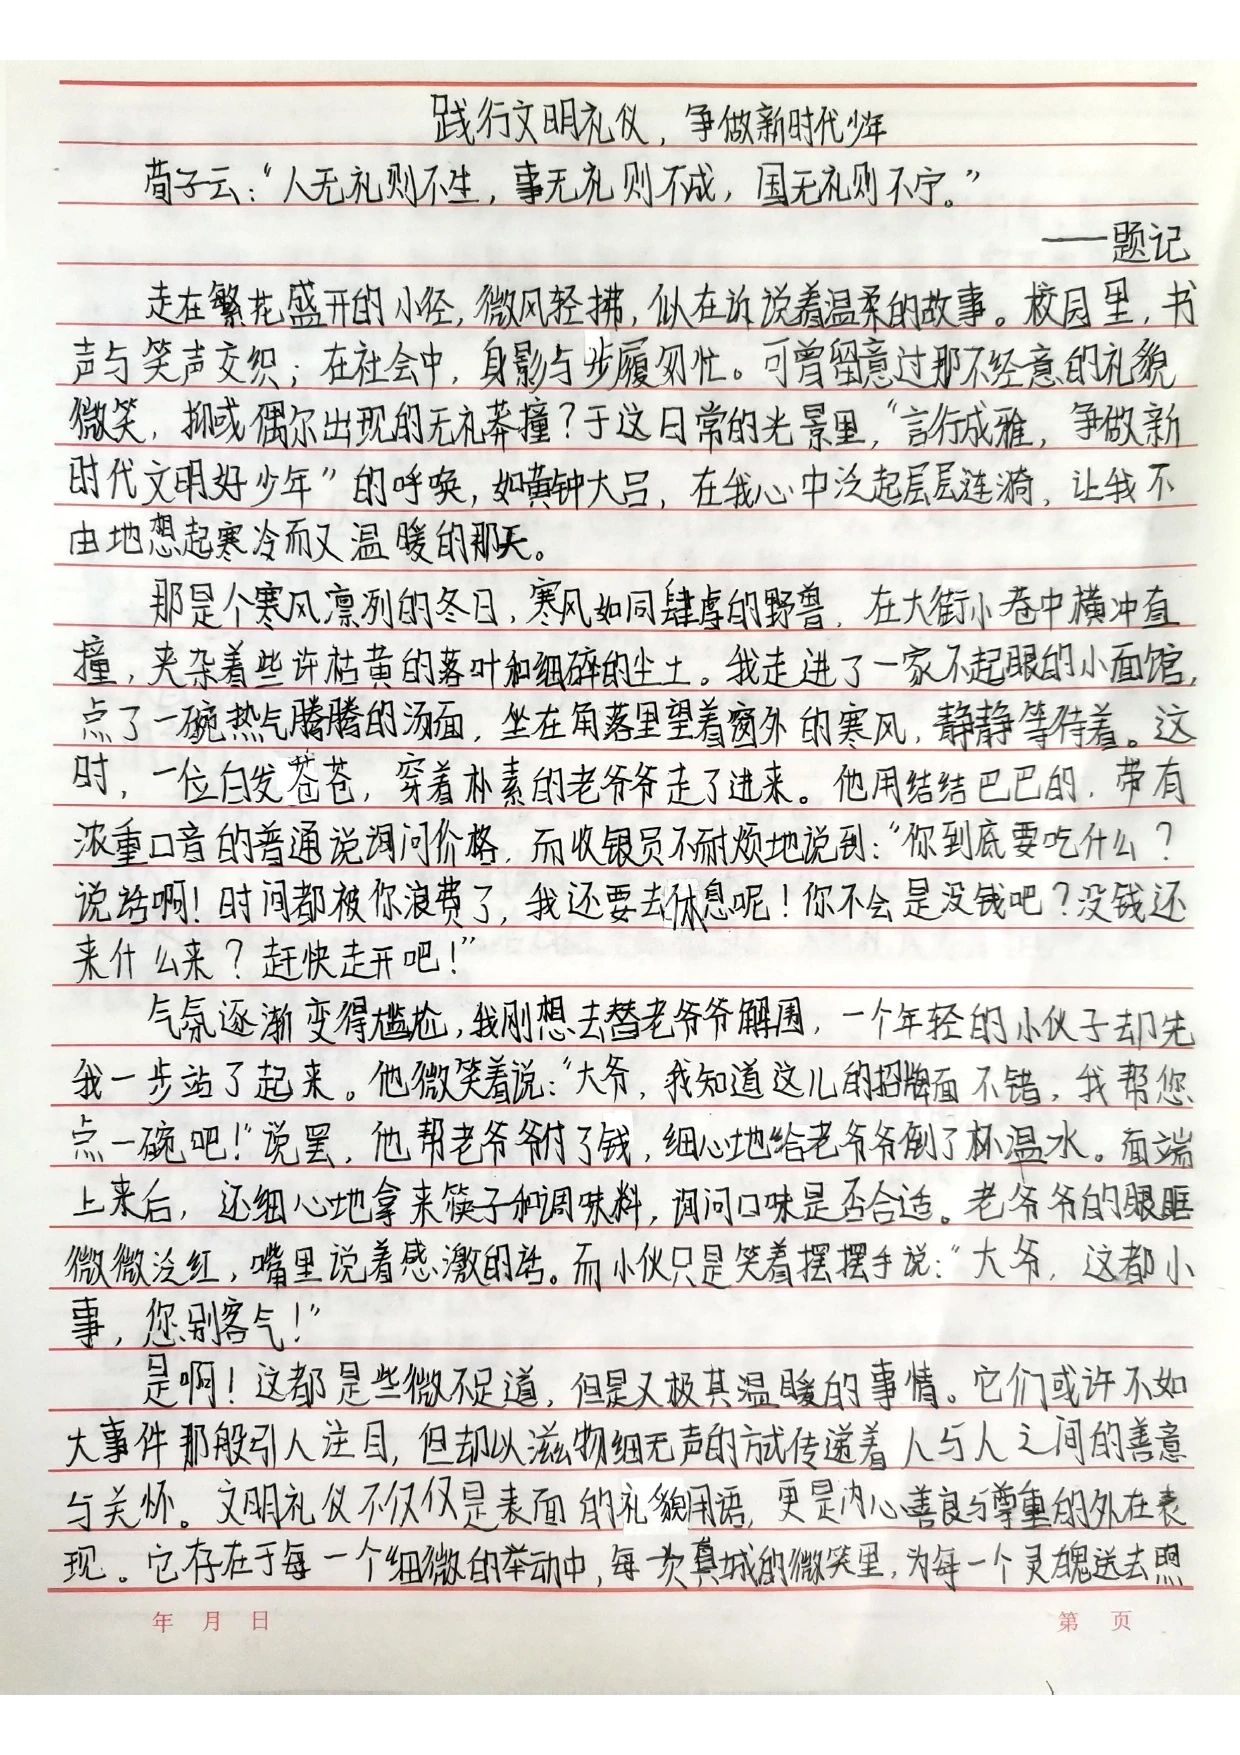 践行文明礼仪，争做新时代少年
荀子云：“人无礼则不生，事无礼则不成，国无礼则不宁。”
——题记
走在繁花盛开的小径，微风轻拂，似在诉说着温柔的故事。校园里，书
声与笑声交织；在社会中，身影与步履匆忙。可曾留意过那不经意的礼貌
微笑，抑或偶尔出现的无礼莽撞？于这日常的光景里，“言行成雅，争做新
时代文明好少年”的呼唤，如黄钟大吕，在我心中泛起层层涟漪，让我不
由地想起寒冷而又温暖的那天。
那是个寒风凛冽的冬日，寒风如同肆虐的野兽，在大街小巷中横冲直
撞，夹杂着些许枯黄的落叶和细碎的尘土。我走进了一家不起眼的小面馆，
点了一碗热气腾腾的汤面，坐在角落里望着窗外的寒风，静静等待着。这
时，一位白发苍苍，穿着朴素的老爷爷走了进来。他用结结巴巴的，带有
浓重口音的普通说询问价格，而收银员不耐烦地说到：“你到底要吃什么？
说话啊！时间都被你浪费了，我还要去休息呢！你不会是没钱吧？没钱还
来什么来？赶快走开吧！”
气氛逐渐变得尴尬，我刚想去替老爷爷解围，一个年轻的小伙子却先
我一步站了起来。他微笑着说：“大爷，我知道这儿的招牌面不错，我帮您
点一碗吧！”说罢，他帮老爷爷付了钱，细心地给老爷爷倒了杯温水。面端
上来后，还细心地拿来筷子和调味料，询问口味是否合适。老爷爷的眼眶
微微泛红，嘴里说着感激的话。而小伙只是笑着摆摆手说：“大爷，这都小
事，您别客气！”
是啊！这都是些微不足道，但是又极其温暖的事情。它们或许不如
大事件那般引人注目，但却以滋物细无声的方式传递着人与人之间的善意
与关怀。文明礼仪不仅仅是表面的礼貌用语，更是内心善良与尊重的外在表
现。它存在于每一个细微的举动中，每一次真诚的微笑里，为每一个灵魂送去照
年 月 日
第 页